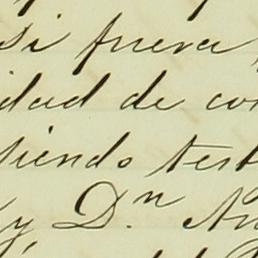 si fuera
idad de co
tiendo test
y, D.n An